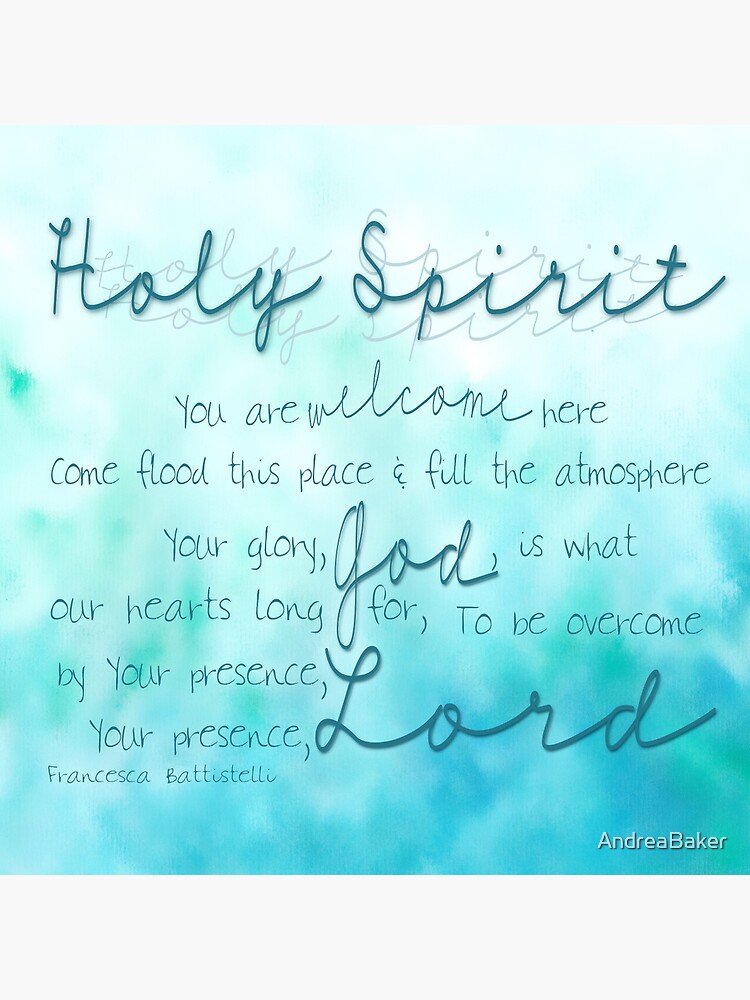 Holy Spirit
You are welcome here
Come flood this place & fill the atmosphere
Your glory, God, is what
our hearts long for, To be overcome
by Your presence,
Your presence, Lord
Francesca Battistelli
AndreaBaker